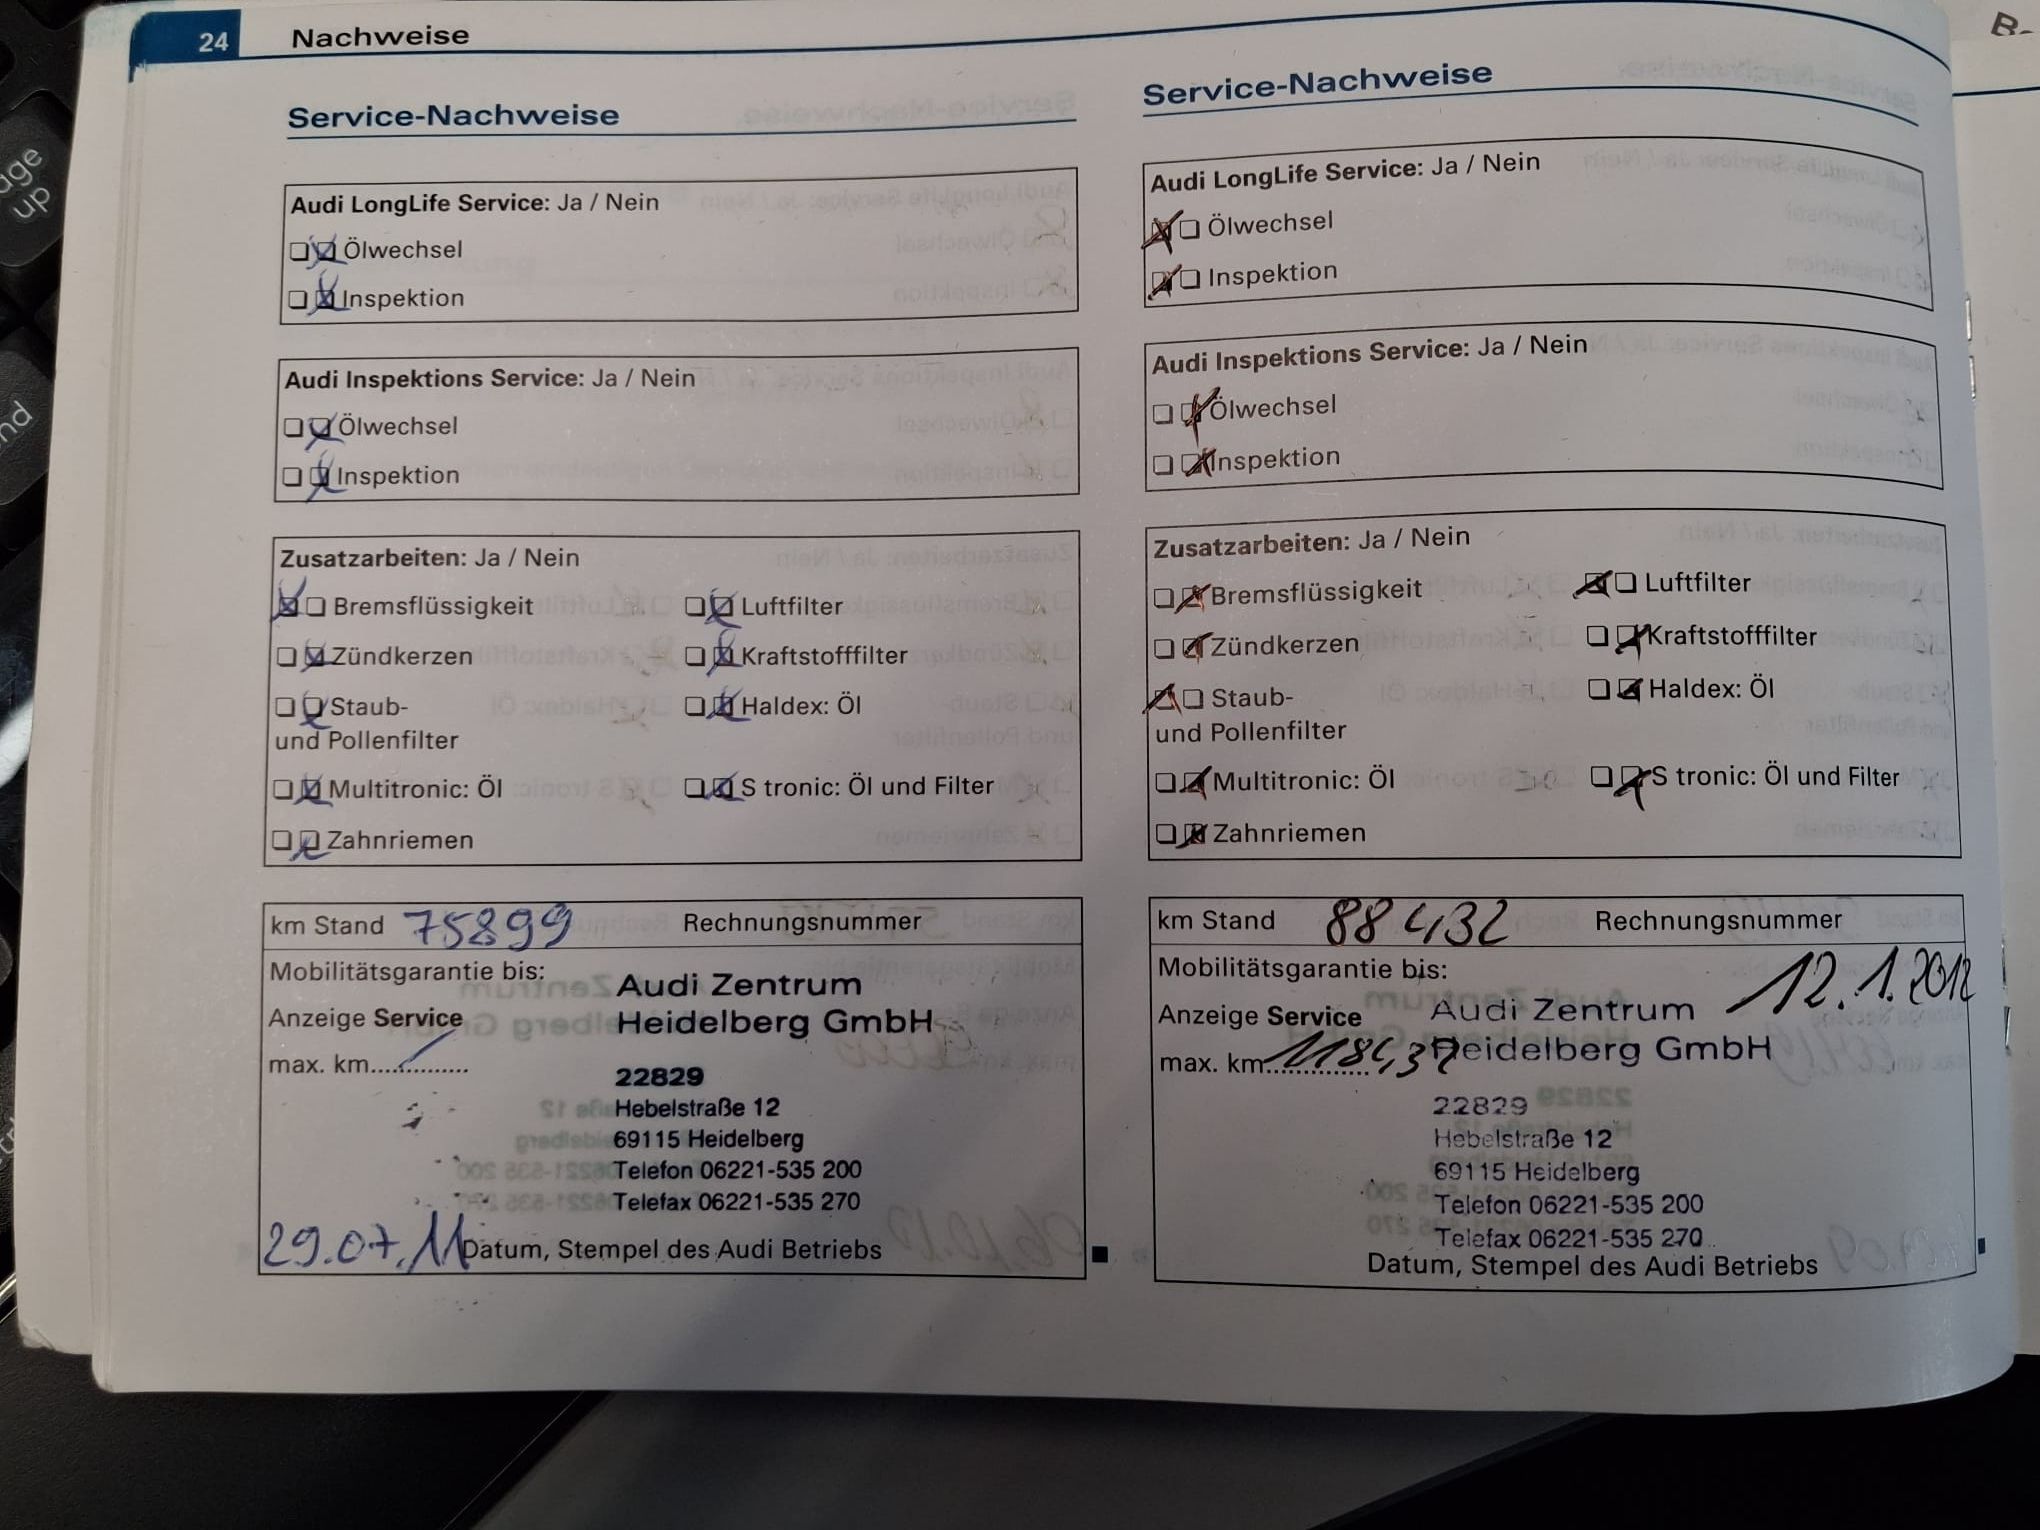 24 Nachweise
Service-Nachweise
Audi LongLife Service: Ja / Nein
Ölwechsel
Inspektion
Audi Inspektions Service: Ja / Nein
Ölwechsel
Inspektion
Zusatzarbeiten: Ja / Nein
Bremsflüssigkeit Luftfilter
Zündkerzen Kraftstofffilter
Staub- Haldex: Öl
und Pollenfilter
Multitronic: Öl S tronic: Öl und Filter
Zahnriemen
km Stand 75899 Rechnungsnummer
Mobilitätsgarantie bis:
Audi Zentrum
Anzeige Service Heidelberg GmbH
max. km..............
22829
Hebelstraße 12
69115 Heidelberg
Telefon 06221-535 200
Telefax 06221-535 270
29.07.11 Datum, Stempel des Audi Betriebs
Service-Nachweise
Audi LongLife Service: Ja / Nein
Ölwechsel
Inspektion
Audi Inspektions Service: Ja / Nein
Ölwechsel
Inspektion
Zusatzarbeiten: Ja / Nein
Bremsflüssigkeit Luftfilter
Zündkerzen Kraftstofffilter
Staub- Haldex: Öl
und Pollenfilter
Multitronic: Öl S tronic: Öl und Filter
Zahnriemen
km Stand 88432 Rechnungsnummer
Mobilitätsgarantie bis: 12.1.2012
Anzeige Service Audi Zentrum
max. km.............. Heidelberg GmbH
22829
Hebelstraße 12
69115 Heidelberg
Telefon 06221-535 200
Telefax 06221-535 270
Datum, Stempel des Audi Betriebs